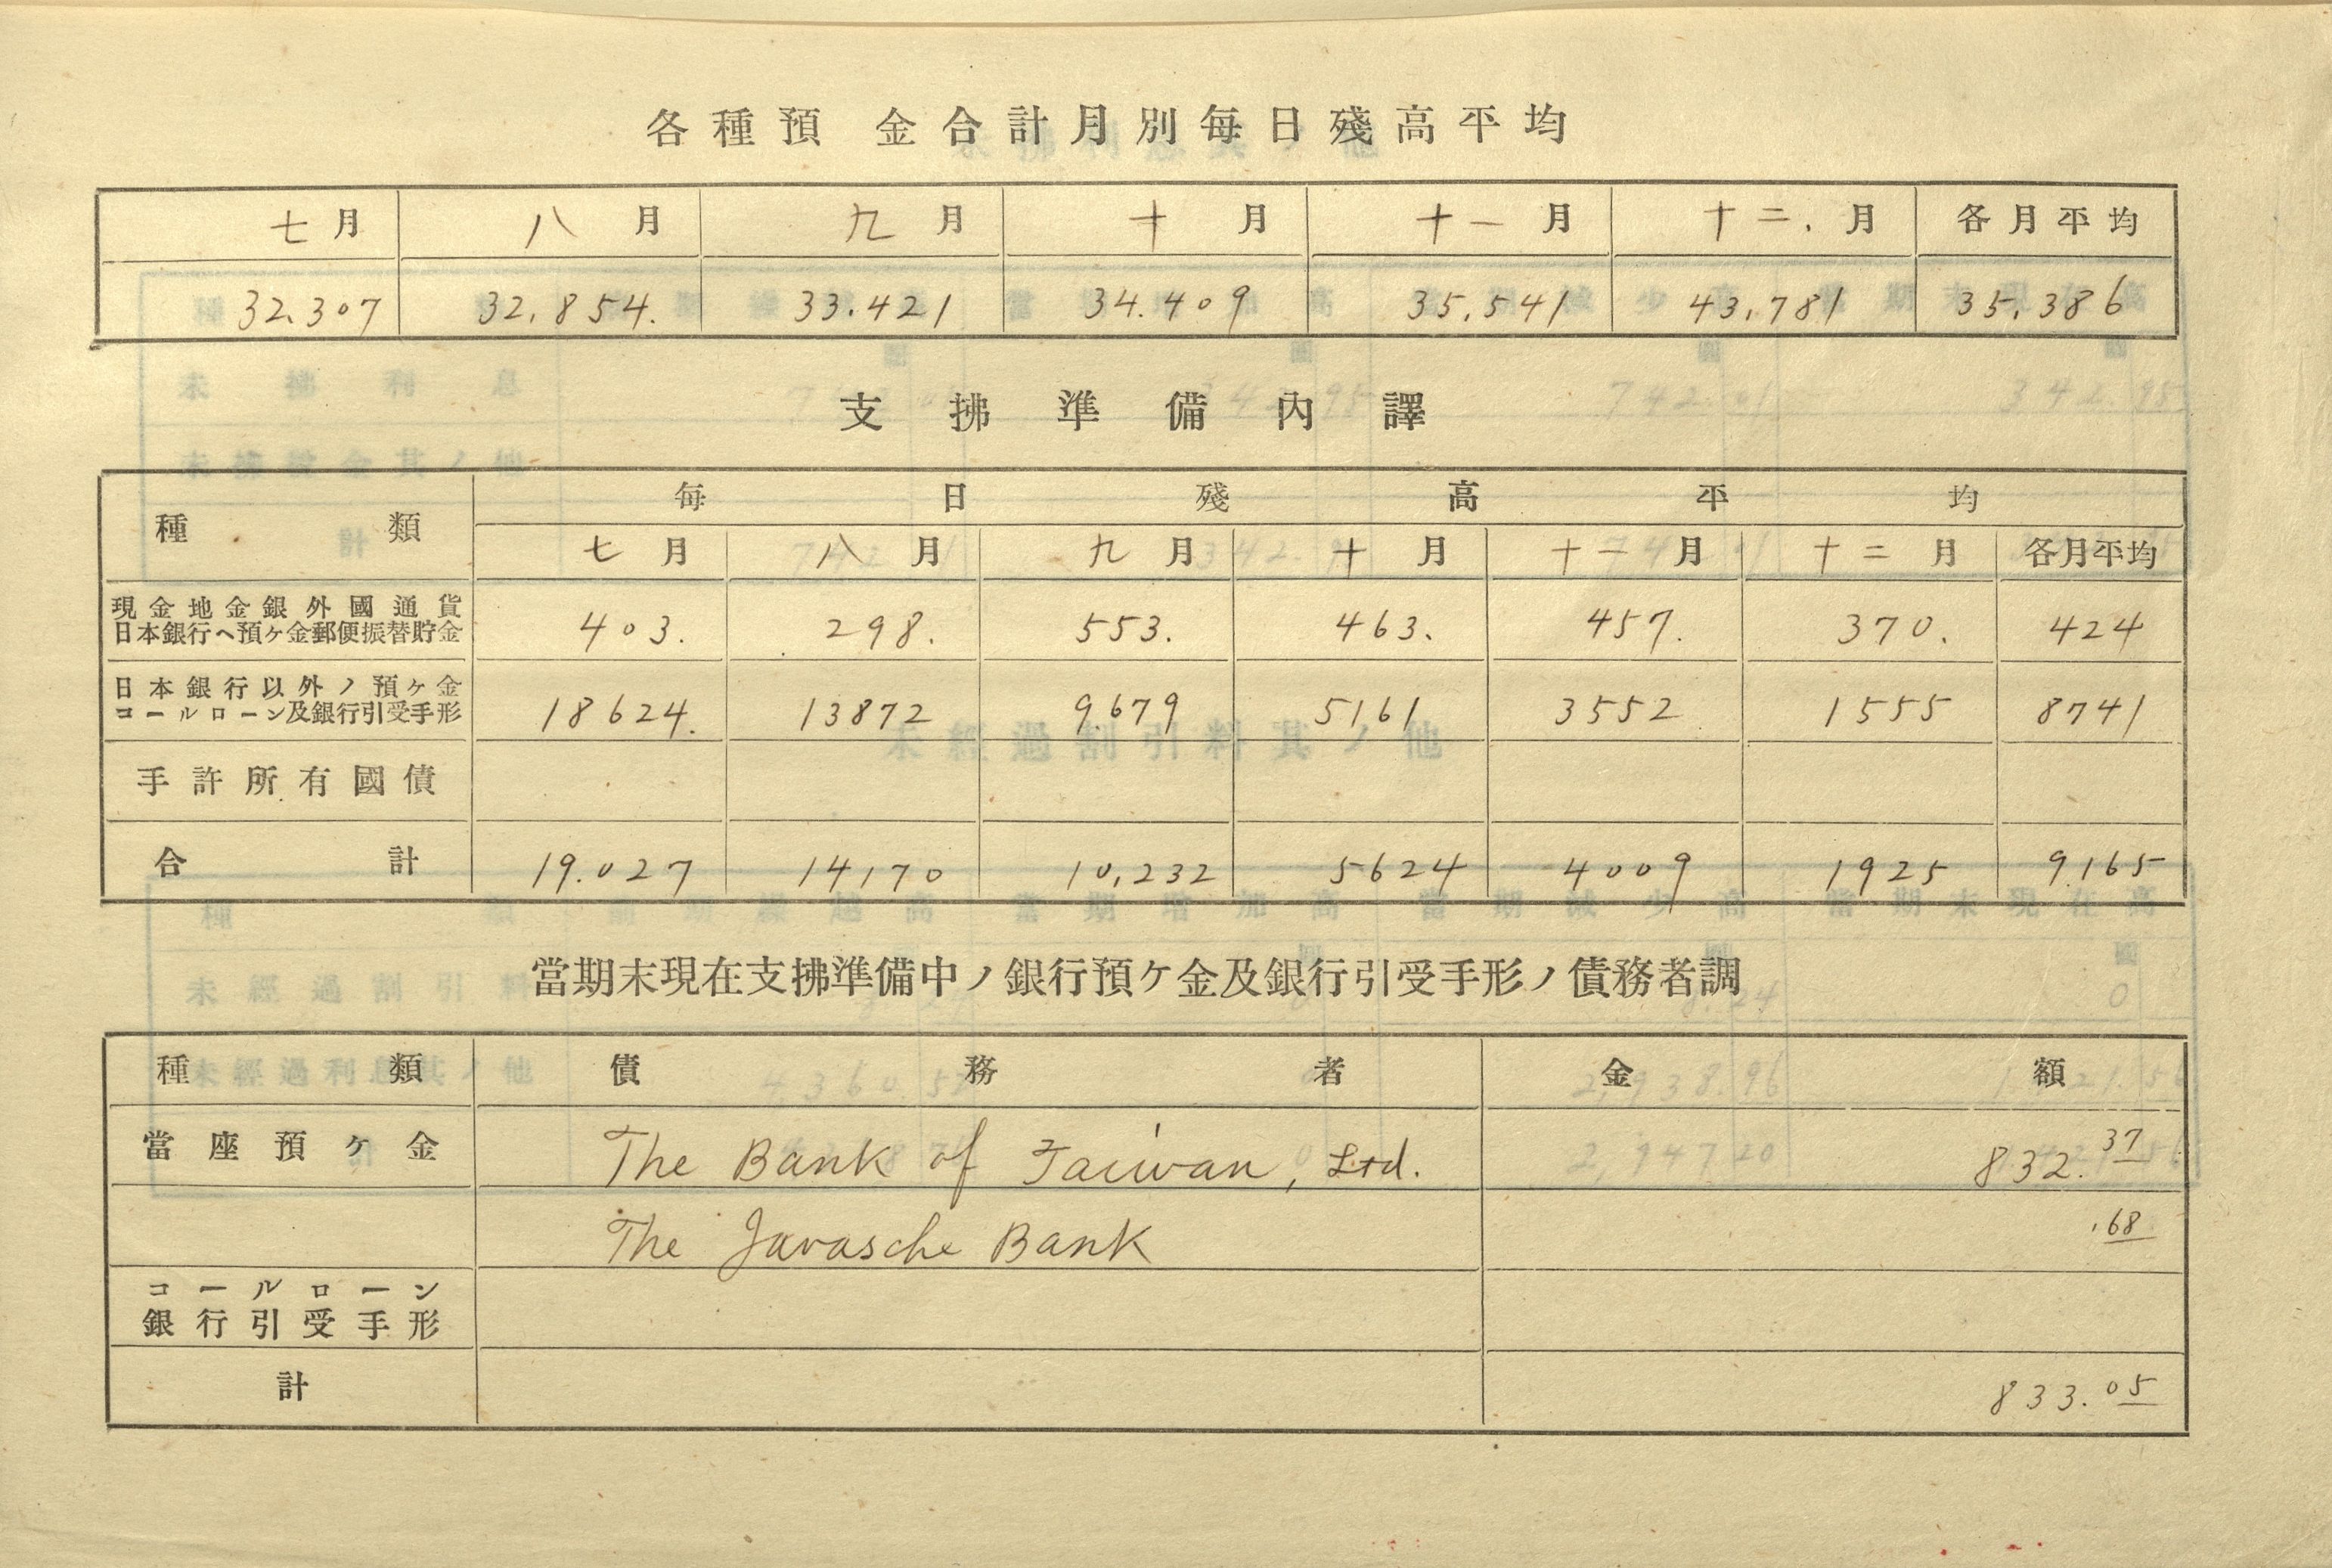 各種預金合計月別每日殘高平均
七月 八月 九月 十月 十一月 十二.月 各月平均
32,307 32,854. 33,421 34.409 35,541 43,781 35,386
支拂準備內譯
種類 每日殘高平均
七月 八月 九月 十月 十一月 十二月 各月平均
現金地金銀外國通貨
日本銀行ヘ預ケ金郵便振替貯金
403. 298. 553. 463. 457. 370. 424
日本銀行以外ノ預ケ金
コールローン及銀行引受手形
18624. 13872 9.679 5161 3552 1555 8741
手許所有國債
合計 19.027 14170 10,232 5624 4009 1925 9165
當期末現在支拂準備中ノ銀行預ケ金及銀行引受手形ノ債務者調
種類 債務者 金額
當座預ケ金 The Bank of Taiwan, Ltd. 832.37
The Javasche Bank .68
コールローン
銀行引受手形
計 833.05